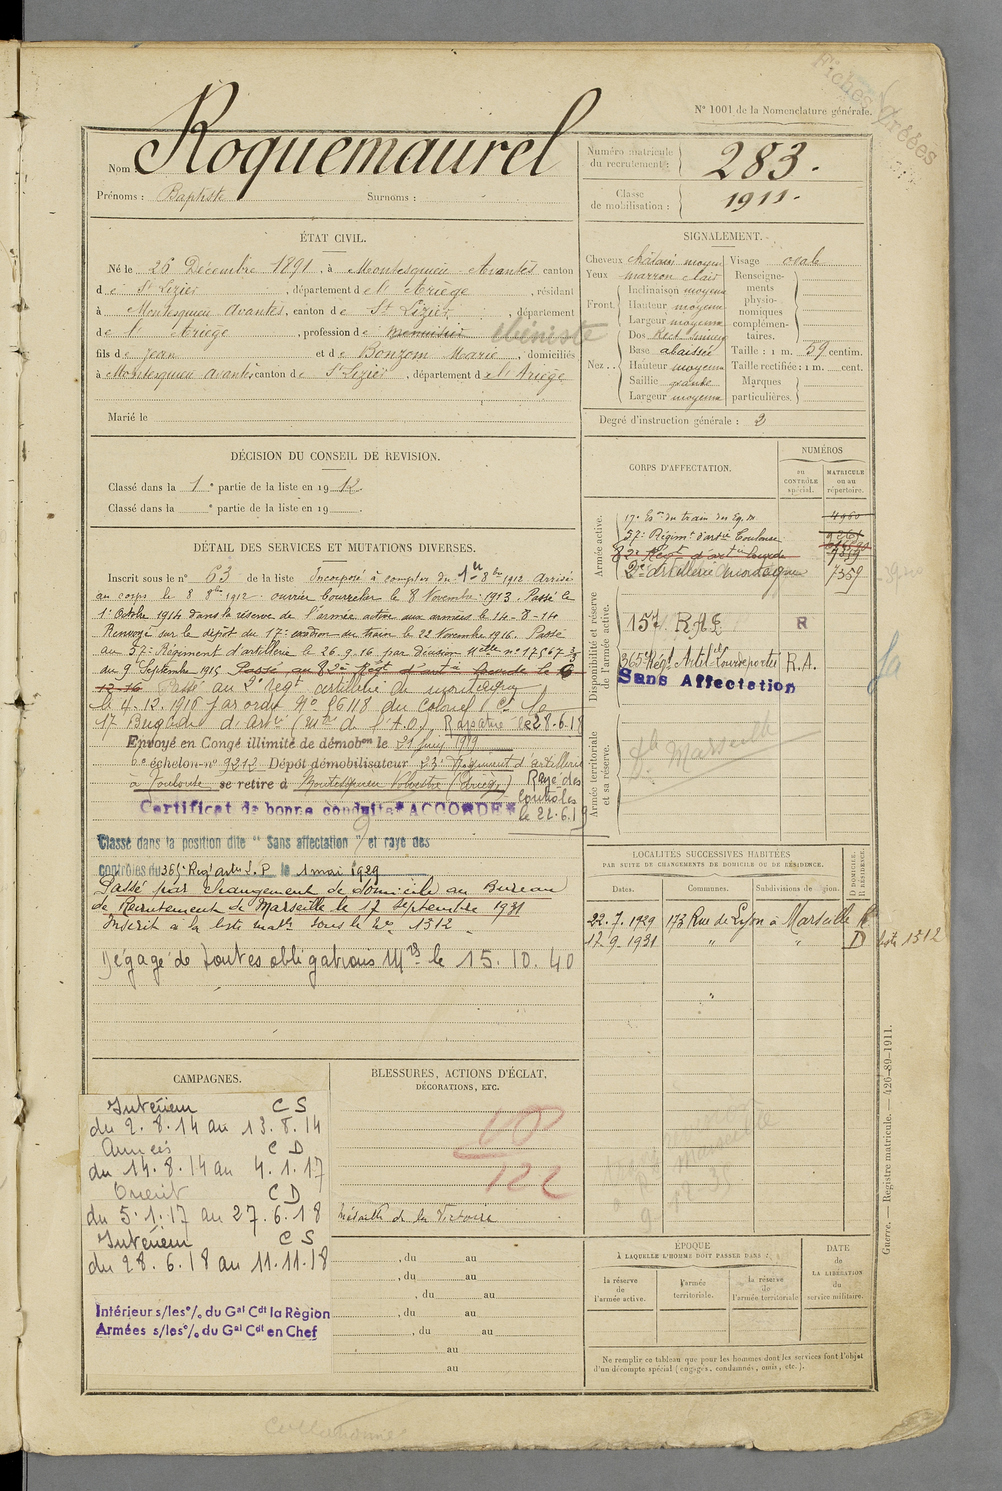 Fiches Créées
N° 1001 de la Nomenclature générale.
Nom : Roquemaurel
Prénoms : Baptiste Surnoms :
Numéro matricule du recrutement : 283.
Classe de mobilisation : 1911.
ÉTAT CIVIL.
Né le 26 Décembre 1891, à Montesquieu-Avantès canton
de St Lizier, département de l'Ariège, résidant
à Montesquieu Avantés, canton de St Lizier, département
de l'Ariège, profession de menuisier ébéniste
fils de Jean et de Bonzom Marie, domiciliés
à Montesquieu Avantès canton de St Lizier, département de l'Ariège
Marié le
SIGNALEMENT.
Cheveux châtain moyen
Yeux marron clair
Front
Inclinaison moyenne
Hauteur moyenne
Largeur moyenne
Nez
Dos Rect.
Base abaissée
Hauteur moyenne
Saillie grande
Largeur moyenne
Visage ovale
Renseignements physionomiques complémentaires.
Taille : 1 m. 59 centim.
Taille rectifiée : 1 m. cent.
Marques particulières.
Degré d'instruction générale : 2
DÉCISION DU CONSEIL DE REVISION.
Classé dans la 1e partie de la liste en 1912.
Classé dans la e partie de la liste en 19 .
DÉTAIL DES SERVICES ET MUTATIONS DIVERSES.
Inscrit sous le n° 63 de la liste Incorporé à compter du 1er 8bre 1912 Arrivé
au corps le 8 8bre 1912. ouvrier bourrelier le 8 Novembre 1913. Passé le
1er Octobre 1914 dans la réserve de l'armée active aux armées le 14-8-14
Renvoyé sur le dépôt du 17e escadron du train le 22 Novembre 1916. Passé
au 57e Régiment d'artillerie le 26.9.16 par décision n° 17567
du 9 Septembre 1915 Passé au 82e Régt d'arte lourde le 6
12-16 Passé au 2e Regt artillerie de montagne
le 4.12.1916 par ordre N° 86118 du Colonel Ct la
17 Brigade d'Artie (de l'A.O.) Rapatrié le 28.6.18
Envoyé en Congé illimité de démobon le 21 juin 1919
6e échelon n° 9212 Dépôt démobilisateur 23e Régiment d'artillerie
à Toulouse se retire à Montesquieu Volvestre (Ariège) Rayé des contrôles le 22.6.19
Certificat de bonne conduite ACCORDÉ
Classé dans la position dite "Sans affectation" et rayé des
contrôles du 365e Regt Artie L.P. le 1 mai 1929
Passé par changement de domicile au Bureau
de Recrutement de Marseille le 17 Septembre 1931
Inscrit à la liste matle sous le No 1312.
Dégagé de toutes obligations Mres le 15.10.40
CORPS D'AFFECTATION.
NUMÉROS
AU CONTRÔLE spécial.
MATRICULE ou au répertoire.
Armée active.
17e Eson du train des Eq. M. 4960
57e Régimt d'artie Toulouse
82e Régt d'artie lourde
2e artillerie montagne 7359
Disponibilité et réserve de l'armée active.
157 R.A.P. R
365e Régt Artil. Lourde portée R.A.
Sans Affectation
Armée territoriale et sa réserve.
Marseille
LOCALITÉS SUCCESSIVES HABITÉES
PAR SUITE DE CHANGEMENTS DE DOMICILE OU DE RÉSIDENCE.
Dates. Communes. Subdivisions de région. D DOMICILE. R RÉSIDENCE.
22.7.1929 173 Rue de Lyon à Marseille R
17.9.1931 " " D liste 1312
CAMPAGNES.
Intérieur CS
du 2.8.14 au 13.8.14
Armées CD
du 14.8.14 au 4.1.17
Orient CD
du 5.1.17 au 27.6.18
Intérieur CS
du 28.6.18 au 11.11.18
Intérieur s/les % du Gal Cdt la Règion
Armées s/les % du Gal Cdt en Chef
BLESSURES, ACTIONS D'ÉCLAT,
DÉCORATIONS, ETC.
122
Médaille de la Victoire
, du au
, du au
, du au
, du au
, du au
au
au
ÉPOQUE
À LAQUELLE L'HOMME DOIT PASSER DANS :
la réserve de l'armée active.
l'armée territoriale.
la réserve de l'armée territoriale
DATE de LA LIBÉRATION du service militaire.
Ne remplir ce tableau que pour les hommes dont les services font l'objet
d'un décompte spécial (engagés, condamnés, omis, etc.).
Guerre. — Registre matricule. — 426-89-1911.
Collationné